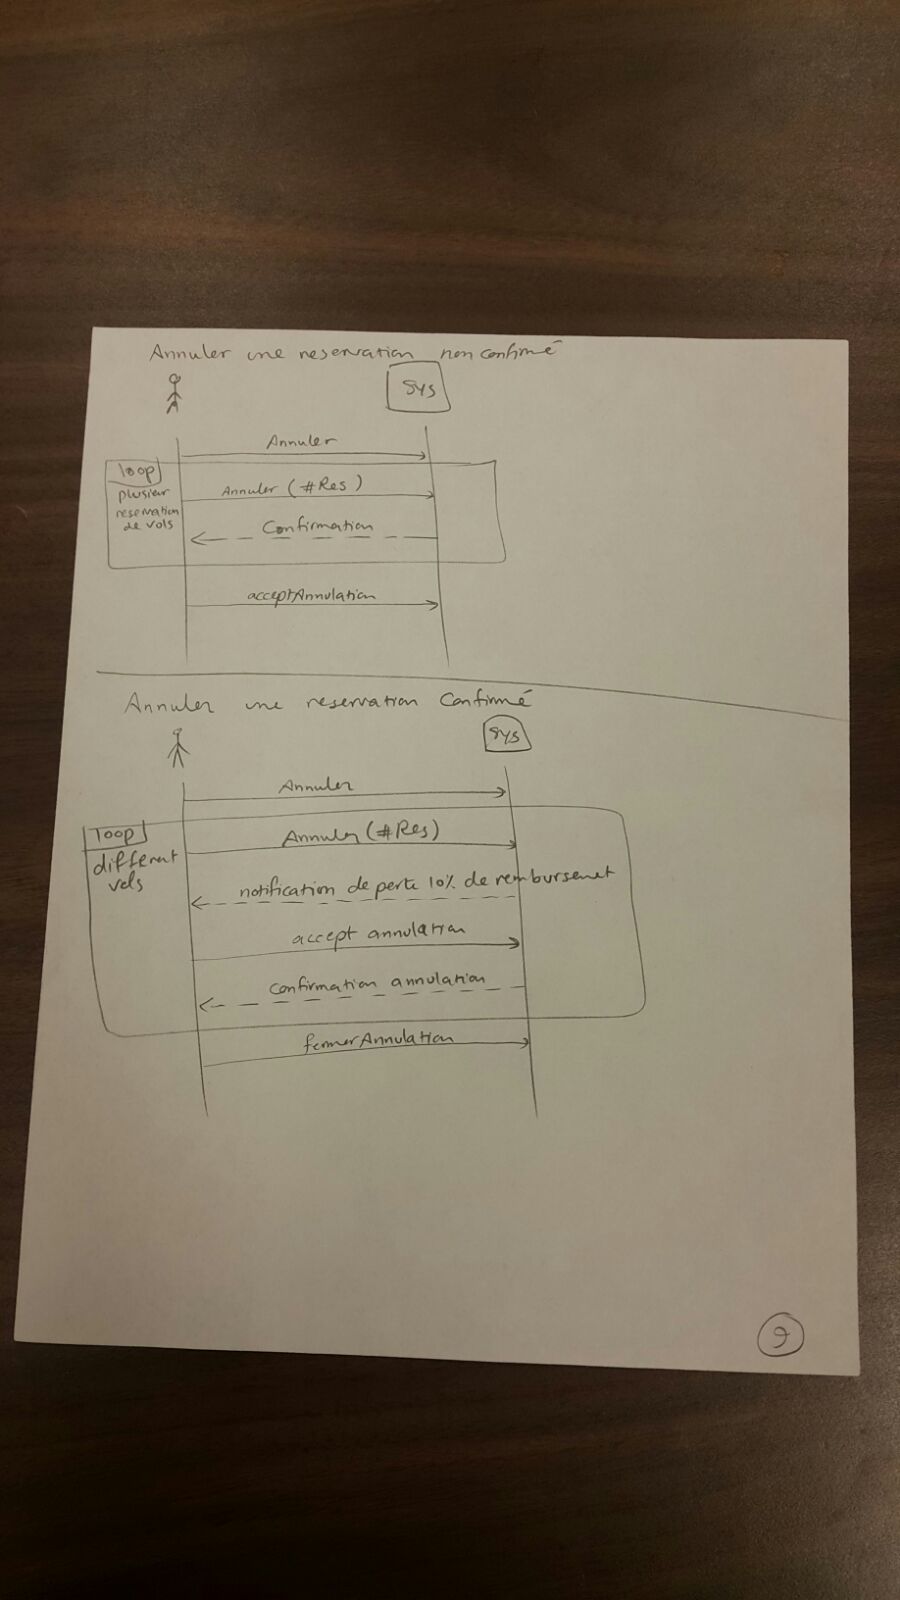 Annuler une reservation non confirmé
Sys
Annuler
loop
plusieur
reservation
de vols
Annuler (#Res)
Confirmation
acceptAnnulation
Annuler une reservation Confirmé
Sys
Annuler
loop
different
vols
Annuler (#Res)
notification de perte 10% de rembursemet
accept annulation
Confirmation annulation
fermerAnnulation